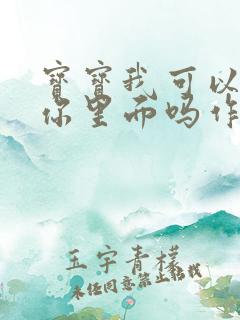 宝宝我可以
你里面吗作
玉宇青檬
未经同意禁止转载